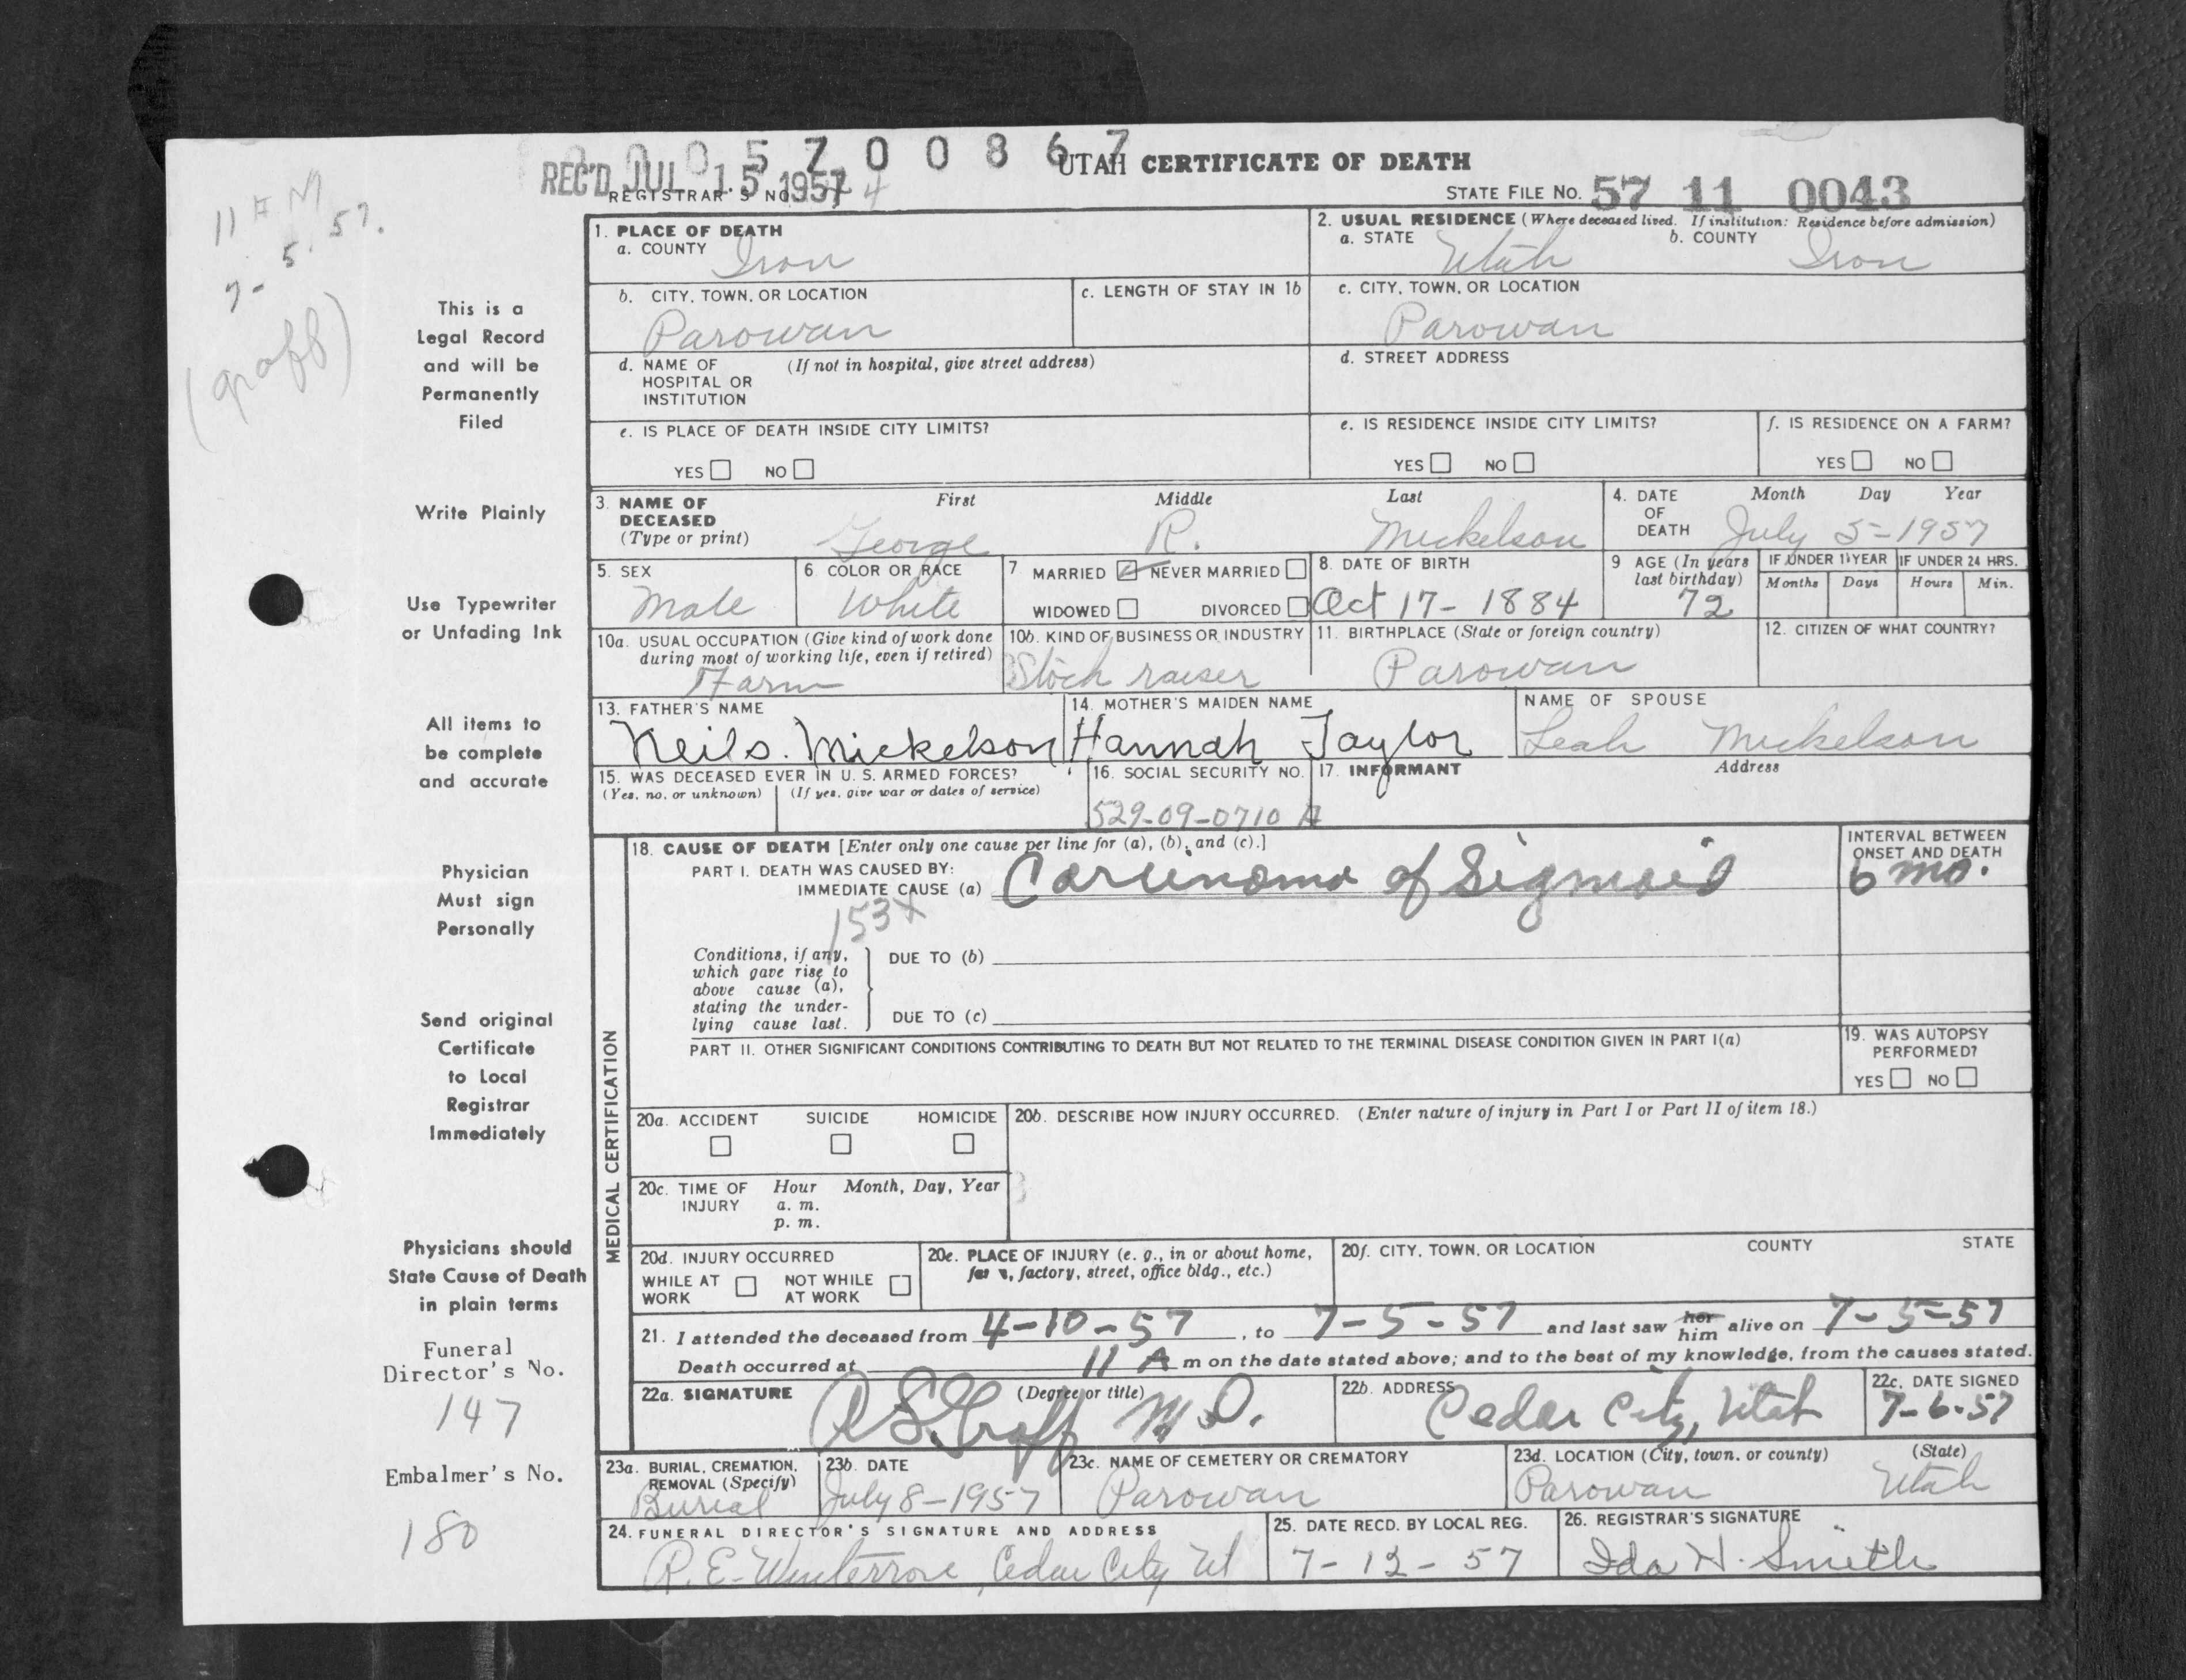 0 0 0 5 7 0 0 8 6 7
REC'D JUL 15 1957
UTAH CERTIFICATE OF DEATH
REGISTRAR'S NO. 74
STATE FILE NO. 57 11 0043
11 M
7-5-57.
(Graff)
This is a
Legal Record
and will be
Permanently
Filed
Write Plainly
Use Typewriter
or Unfading Ink
All items to
be complete
and accurate
Physician
Must sign
Personally
Send original
Certificate
to Local
Registrar
Immediately
Physicians should
State Cause of Death
in plain terms
Funeral
Director's No.
147
Embalmer's No.
180
1. PLACE OF DEATH
a. COUNTY Iron
2. USUAL RESIDENCE (Where deceased lived. If institution: Residence before admission)
a. STATE Utah b. COUNTY Iron
b. CITY, TOWN, OR LOCATION
Parowan
c. LENGTH OF STAY IN 1b
c. CITY, TOWN, OR LOCATION
Parowan
d. NAME OF (If not in hospital, give street address)
HOSPITAL OR
INSTITUTION
d. STREET ADDRESS
e. IS PLACE OF DEATH INSIDE CITY LIMITS?
YES NO
e. IS RESIDENCE INSIDE CITY LIMITS?
YES NO
f. IS RESIDENCE ON A FARM?
YES NO
3. NAME OF First Middle Last
DECEASED
(Type or print) George R. Mickelson
4. DATE Month Day Year
OF
DEATH July 5-1957
5. SEX
Male
6. COLOR OR RACE
White
7 MARRIED NEVER MARRIED
WIDOWED DIVORCED
8. DATE OF BIRTH
Oct 17-1884
9 AGE (In years
last birthday)
72
IF UNDER 1 YEAR
Months Days
IF UNDER 24 HRS.
Hours Min.
10a. USUAL OCCUPATION (Give kind of work done
during most of working life, even if retired)
Farm
10b. KIND OF BUSINESS OR INDUSTRY
Stock raiser
11. BIRTHPLACE (State or foreign country)
Parowan
12. CITIZEN OF WHAT COUNTRY?
13. FATHER'S NAME
Neils. Mickelson
14. MOTHER'S MAIDEN NAME
Hannah Taylor
NAME OF SPOUSE
Leah Mickelson
15. WAS DECEASED EVER IN U. S. ARMED FORCES?
(Yes, no, or unknown) (If yes, give war or dates of service)
16. SOCIAL SECURITY NO.
529-09-0710 A
17. INFORMANT Address
MEDICAL CERTIFICATION
18. CAUSE OF DEATH [Enter only one cause per line for (a), (b), and (c).]
PART I. DEATH WAS CAUSED BY:
IMMEDIATE CAUSE (a) Carcinoma of Sigmoid
153X
INTERVAL BETWEEN
ONSET AND DEATH
6 mo.
Conditions, if any,
which gave rise to
above cause (a),
stating the under-
lying cause last.
DUE TO (b)
DUE TO (c)
PART II. OTHER SIGNIFICANT CONDITIONS CONTRIBUTING TO DEATH BUT NOT RELATED TO THE TERMINAL DISEASE CONDITION GIVEN IN PART I(a)
19. WAS AUTOPSY
PERFORMED?
YES NO
20a. ACCIDENT SUICIDE HOMICIDE
20b. DESCRIBE HOW INJURY OCCURRED. (Enter nature of injury in Part I or Part II of item 18.)
20c. TIME OF Hour Month, Day, Year
INJURY a. m.
p. m.
20d. INJURY OCCURRED
WHILE AT NOT WHILE
WORK AT WORK
20e. PLACE OF INJURY (e. g., in or about home,
factory, street, office bldg., etc.)
20f. CITY, TOWN, OR LOCATION COUNTY STATE
21. I attended the deceased from 4-10-57, to 7-5-57 and last saw her him alive on 7-5-57
Death occurred at 11 A m on the date stated above; and to the best of my knowledge, from the causes stated.
22a. SIGNATURE (Degree or title)
R S. Graff M.D.
22b. ADDRESS
Cedar City, Utah
22c. DATE SIGNED
7-6-57
23a. BURIAL, CREMATION,
REMOVAL (Specify)
Burial
23b. DATE
July 8-1957
23c. NAME OF CEMETERY OR CREMATORY
Parowan
23d. LOCATION (City, town, or county) (State)
Parowan Utah
24. FUNERAL DIRECTOR'S SIGNATURE AND ADDRESS
R. E. Winterrose, Cedar City Ut
25. DATE RECD. BY LOCAL REG.
7-12-57
26. REGISTRAR'S SIGNATURE
Ida H. Smith